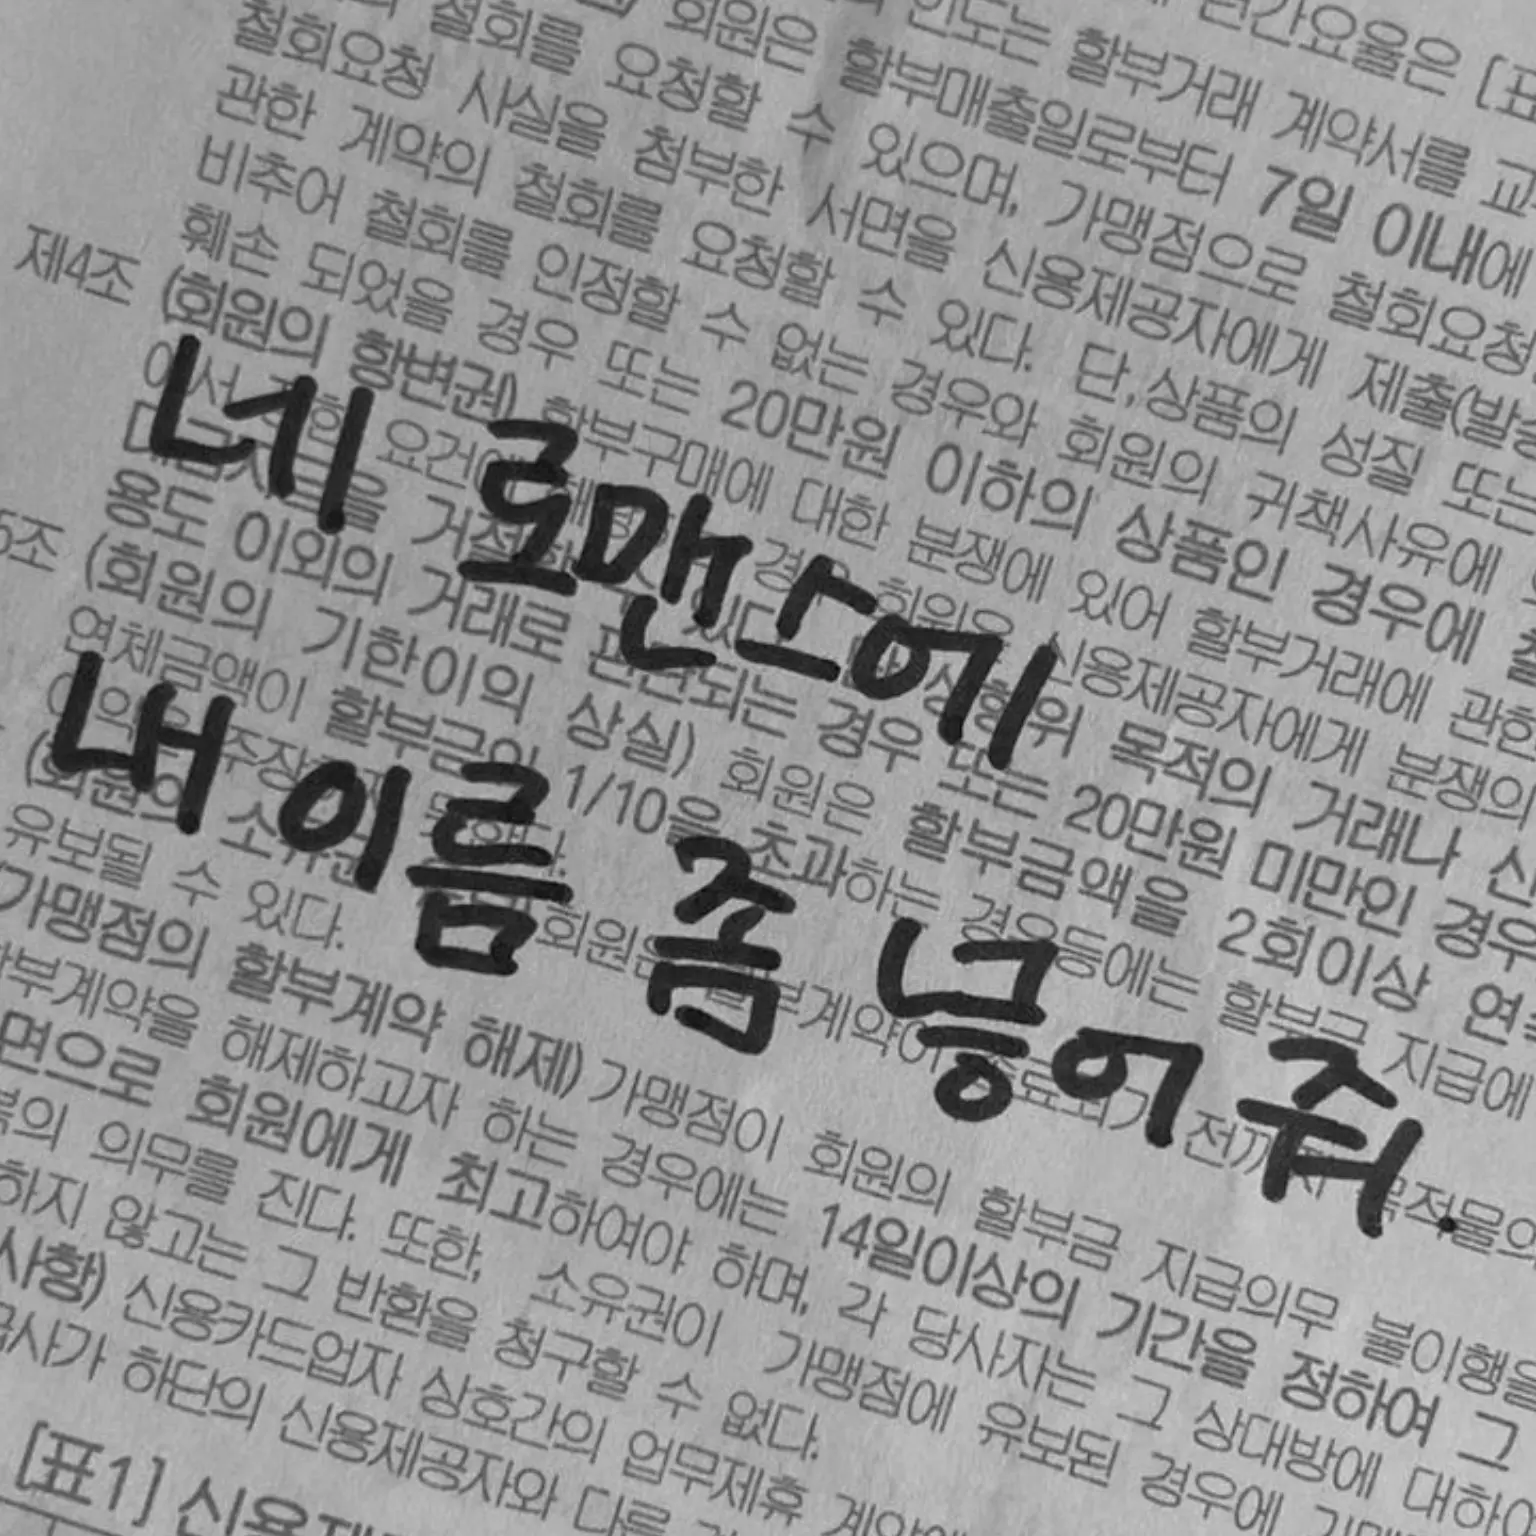 연간요율은 [표
인도는 할부거래 계약서를 교
회원은 할부매출일로부터 7일 이내에
철회를 요청할 수 있으며, 가맹점으로 철회요청
철회요청 사실을 첨부한 서면을 신용제공자에게 제출(발송
관한 계약의 철회를 요청할 수 있다. 단,상품의 성질 또는
비추어 철회를 인정할 수 없는 경우와 회원의 귀책사유에
훼손 되었을 경우 또는 20만원 이하의 상품인 경우에
제4조 (회원의 항변권) 할부구매에 대한 분쟁에 있어 할부거래에 관한
요건에 경우 회원은 신용제공자에게 분쟁의
상행위 목적의 거래나 신
용도 이외의 거래로 판단되는 경우 또는 20만원 미만인 경우
5조 (회원의 기한이의 상실) 회원은 할부금액을 2회이상 연속
연체금액이 할부금의 1/10을 초과하는 경우등에는 할부금 지급에
네 로맨스에
내 이름 좀 넣어 줘.
(회원의 소유권 회원은 할부계약이 종료되기 전까지 목적물의
유보될 수 있다.
(가맹점의 할부계약 해제) 가맹점이 회원의 할부금 지급의무 불이행을
할부계약을 해제하고자 하는 경우에는 14일이상의 기간을 정하여 그
면으로 회원에게 최고하여야 하며, 각 당사자는 그 상대방에 대하여
의 의무를 진다. 또한, 소유권이 가맹점에 유보된 경우에
하지 않고는 그 반환을 청구할 수 없다.
사항) 신용카드업자 상호간의 업무제휴
하단의 신용제공자와 다를
[표1]